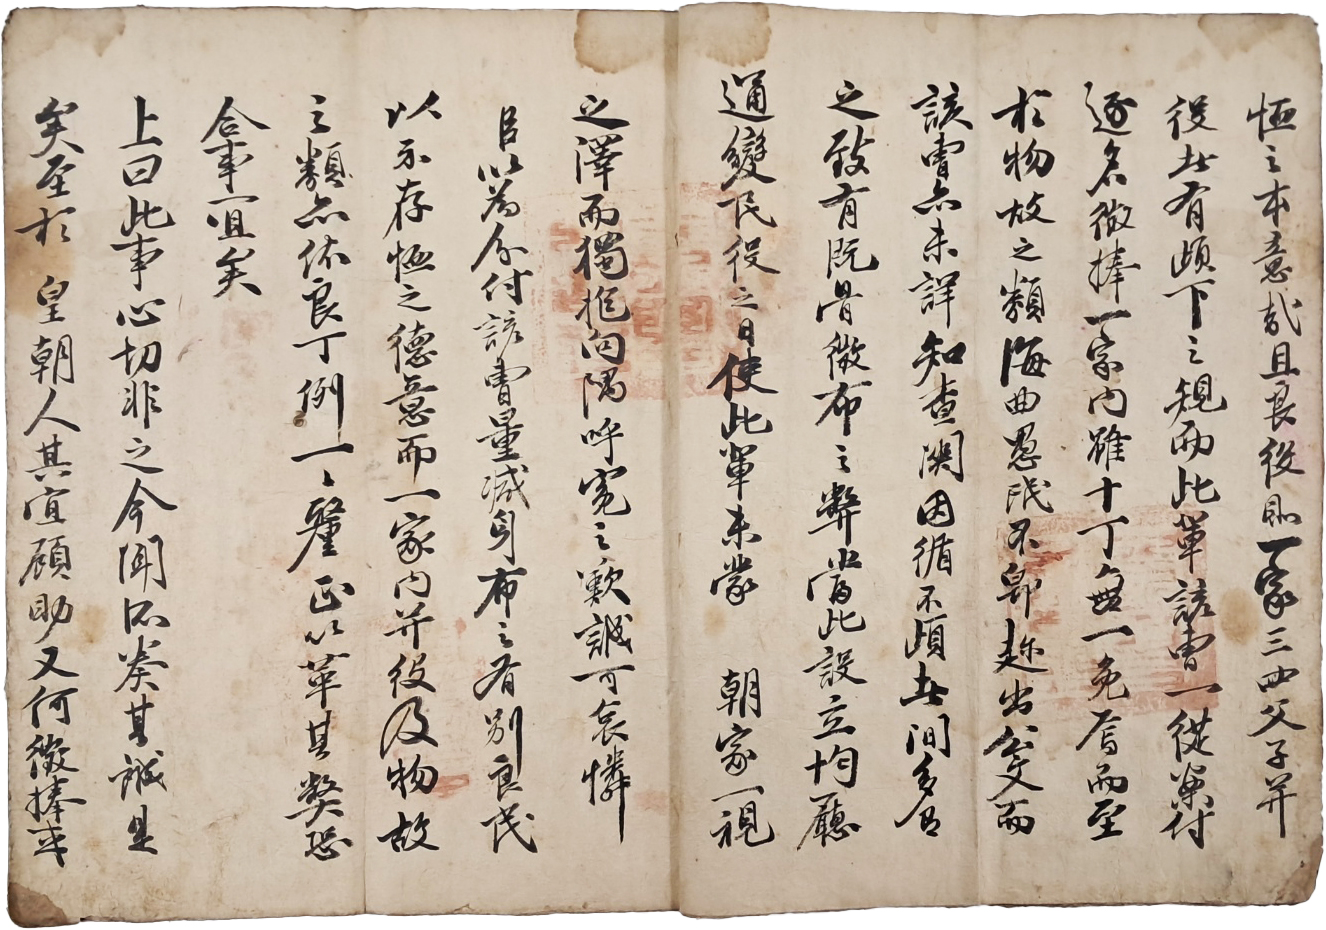 恤之本意哉且良役則一家三四父子并
役者有頉下之規而此輩該曹一從案付
逐名徵捧一家內雖十丁無一免焉而至
於物故之類海曲愚氓不卽趂出公文而
該曹亦未詳知查關因循不頉者間多有
之致有旣骨徵布之弊當此設立均廳
通變民役之日使此輩未蒙 朝家一視
之澤而獨抱向隅呼寃之歎誠可哀憐
臣以爲分付該曹量減身布之有別良民
以示存恤之德意而一家內并役及物故
之類亦依良丁例一々釐正以革其弊恐
合事宜矣
上曰此事心切非之今聞所奏其誠是
矣至於 皇朝人其宜顧助又何徵捧或